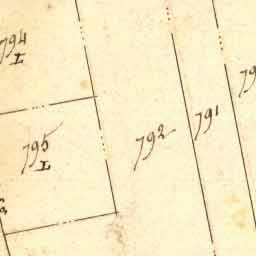 794
L
795
L
792
791
79